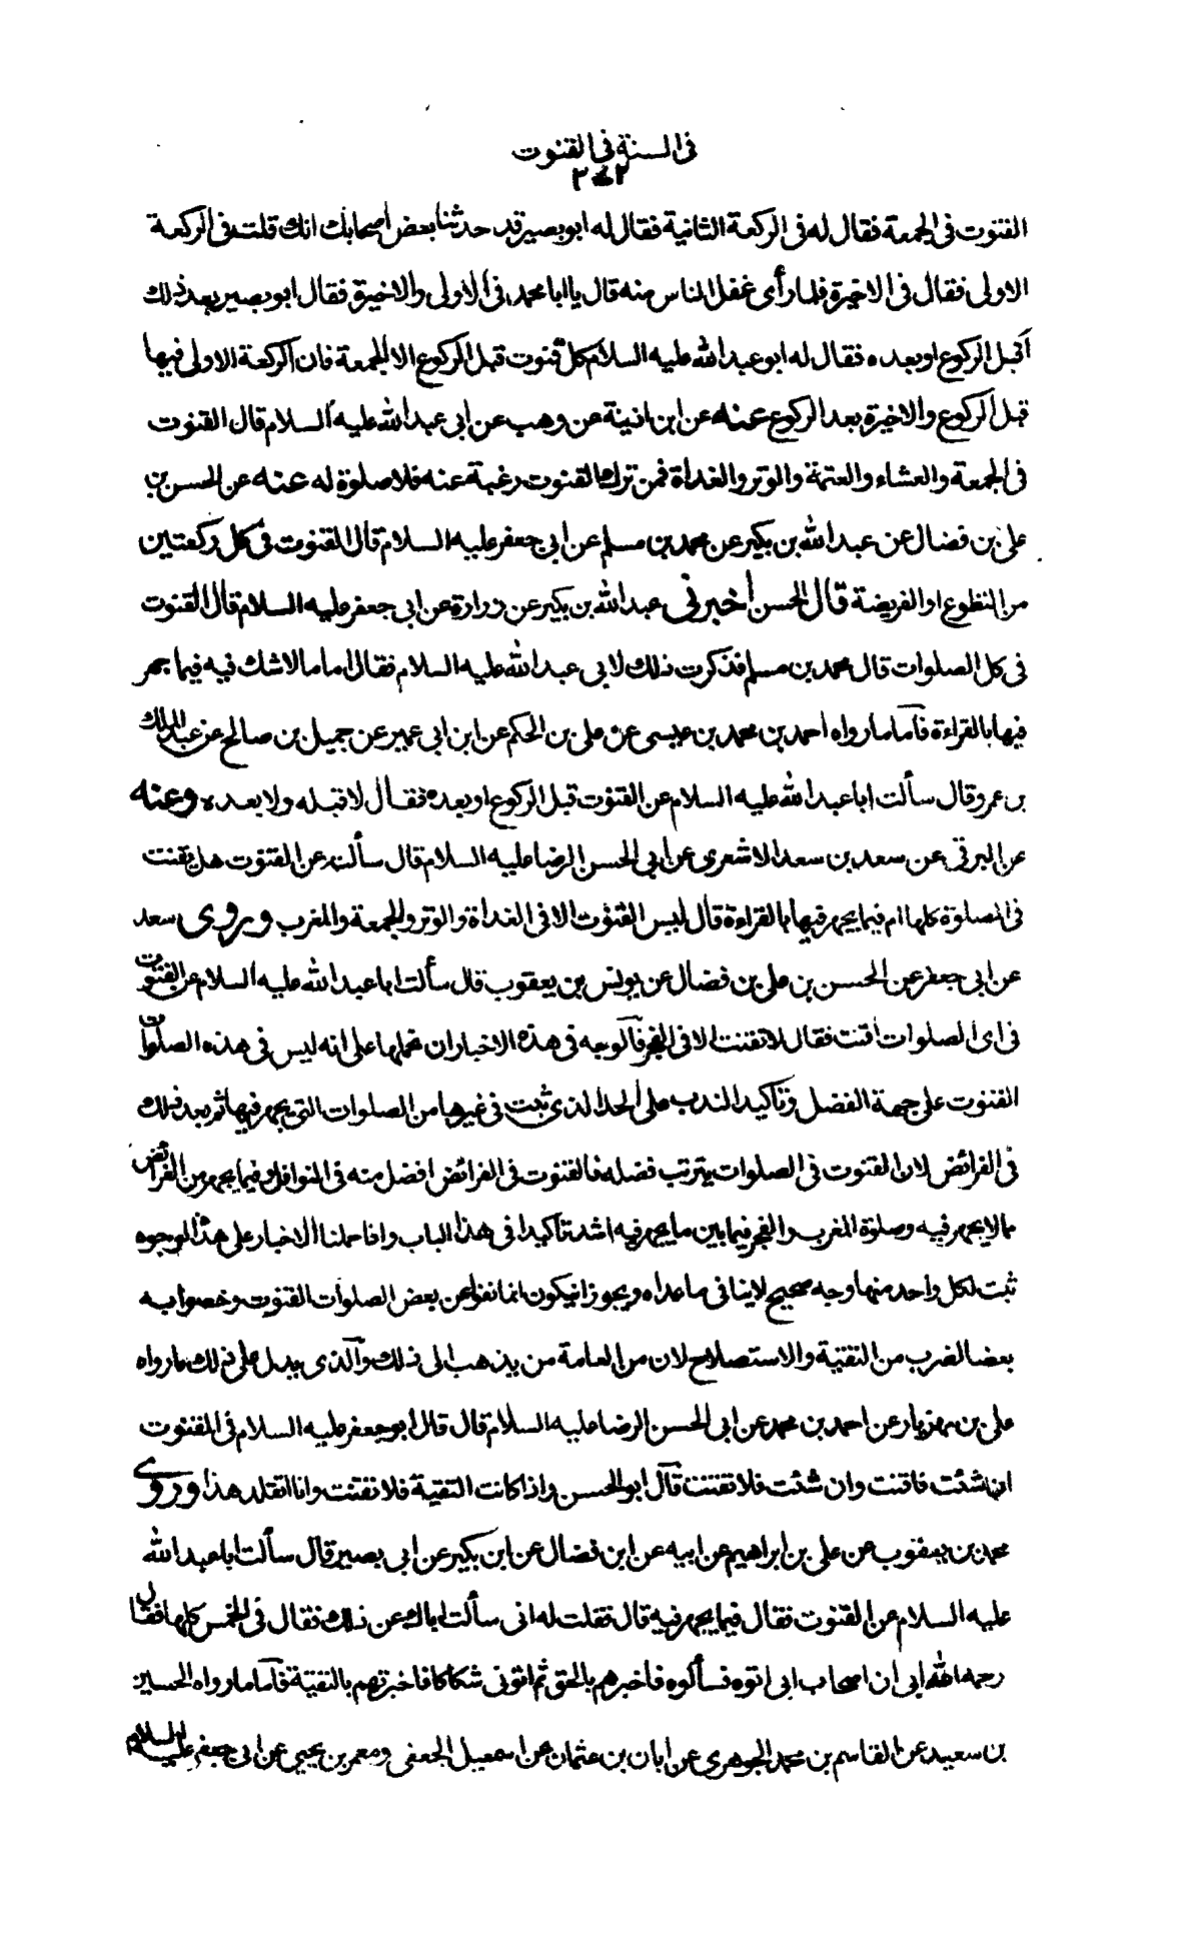 فى السنة فى القنوت
٣٤٢
القنوت فى الجمعة فقال له فى الركعة الثانية فقال له ابو بصير قد حدثنا بعض اصحابك انك قلت فى الركعة
الاولى فقال فى الاخيرة فلما رأى غفل الناس منه قال يا ابا محمد فى الاولى والاخيرة فقال ابو بصير بعد ذلك
أقبل الركوع او بعده فقال له ابو عبد الله عليه السلام كل قنوت قبل الركوع الا الجمعة فان الركعة الاولى فيها
قبل الركوع والاخيرة بعد الركوع عنه عن ابن اذينة عن وهب عن ابى عبد الله عليه السلام قال القنوت
فى الجمعة والعشاء والعتمة والوتر والغداة فمن ترك القنوت رغبة عنه فلا صلوة له عنه عن الحسن بن
على بن فضال عن عبد الله بن بكير عن محمد بن مسلم عن ابى جعفر عليه السلام قال القنوت فى كل ركعتين
من التطوع او الفريضة قال الحسن اخبرنى عبد الله بن بكير عن زرارة عن ابى جعفر عليه السلام قال القنوت
فى كل الصلوات قال محمد بن مسلم فذكرت ذلك لابى عبد الله عليه السلام فقال اما ما لا شك فيه فيما جهر
فيها بالقراءة فأما ما رواه احمد بن محمد بن عيسى عن على بن الحكم عن ابن ابى عمير عن جميل بن صالح عن عبد الملك
بن عمرو قال سألت ابا عبد الله عليه السلام عن القنوت قبل الركوع او بعده فقال لا قبله ولا بعده وعنه
عن البرقى عن سعد بن سعد الاشعرى عن ابى الحسن الرضا عليه السلام قال سألته عن القنوت هل يقنت
فى الصلوة كلها ام فيما يجهر فيها بالقراءة قال ليس القنوت الا فى الغداة والوتر والجمعة والمغرب وروى سعد
عن ابى جعفر عن الحسن بن على بن فضال عن يونس بن يعقوب قال سألت ابا عبد الله عليه السلام عن القنوت
فى اى الصلوات أقنت فقال لا تقنت الا فى الفجر فالوجه فى هذه الاخبار ان نحملها على انه ليس فى هذه الصلوات
القنوت على جهة الفضل وتأكيد الندب على الحد الذى ثبت فى غيرها من الصلوات التى يجهر فيها ثم بعد ذلك
فى الفرائض لان القنوت فى الصلوات يترتب فضله فالقنوت فى الفرائض افضل منه فى النوافل وفيما يجهر من الفرائض
مما لا يجهر فيه وصلوة المغرب والفجر فيما بين ما يجهر فيه اشد تأكيدا فى هذا الباب واذا حملنا الاخبار على هذا الوجوه
ثبت لكل واحد منها وجه صحيح لا ينافى ما عداه ويجوز ان يكون انما نفوا عن بعض الصلوات القنوت وخصوا به
بعضا لضرب من التقية والاستصلاح لان من العامة من يذهب الى ذلك والذى يدل على ذلك ما رواه
على بن مهزيار عن احمد بن محمد عن ابى الحسن الرضا عليه السلام قال قال ابو جعفر عليه السلام فى القنوت
ان شئت فاقنت وان شئت فلا تقنت قال ابو الحسن واذا كانت التقية فلا تقنت وانا اتقلد هذا وروى
محمد بن يعقوب عن على بن ابراهيم عن ابيه عن ابن فضال عن ابن بكير عن ابى بصير قال سألت ابا عبد الله
عليه السلام عن القنوت فقال فيما يجهر فيه قال فقلت له انى سألت اباك عن ذلك فقال فى الخمس كلها فقال
رحم الله ابى ان اصحاب ابى اتوه فسألوه فاخبرهم بالحق ثم اتونى شكاكا فاخبرتهم بالتقية فأما ما رواه الحسين
بن سعيد عن القاسم بن محمد الجوهرى عن ابان بن عثمان عن اسمعيل الجعفى ومعمر بن يحيى عن ابى جعفر عليه السلام